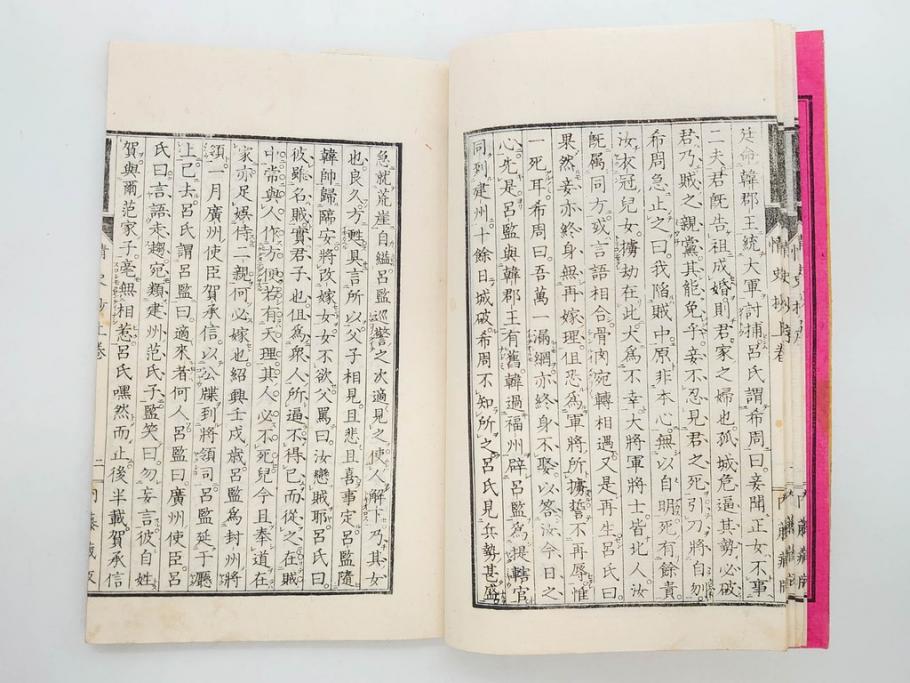 廷命韓郡王統大軍討捕呂氏謂希周曰妾聞正女不事
二夫君既告祖成婚則君家之婦也孤城危逼其勢必破
君乃賊之親黨其能免乎妾不忍見君之死引刀將自刎
希周急止之曰我陷賊中原非本心無以自明死有餘責
汝衣冠兒女擄劫在此大為不幸大將軍將士皆北人汝
既属同方或言語相合骨肉宛轉相遇又是再生呂氏曰
果然妾亦終身無再嫁理但恐為軍將所擄誓不再辱惟
一死耳希周曰吾萬一漏網亦終身不娶以答汝今日之
心先是呂監與韓郡王有舊韓過福州辟呂監為提轄官
同到建州十餘日城破希周不知所之呂氏見兵勢甚盛
急就荒崖自縊呂監巡警之次適見之使人解下乃其女
也良久方甦具言所以父子相見且悲且喜事定呂監隨
韓帥歸臨安將改嫁女女不欲父罵曰汝戀賊耶呂氏曰
彼雖名賊實君子也但為衆人所逼不得已而從之在賊
中常與人作方便若有天理其人必不死兒今且奉道在
家亦足娯侍二親何必嫁也紹興壬戌歳呂監為封州將
領一月廣州使臣賀承信以公牒到將領司呂監延于廳
上已去呂氏謂呂監曰適來者何人呂監曰廣州使臣呂
氏曰言語走趨宛類建州范氏子監笑曰勿妄言彼自姓
賀與爾范家子毫無相惹呂氏嘿然而止後半載賀承信